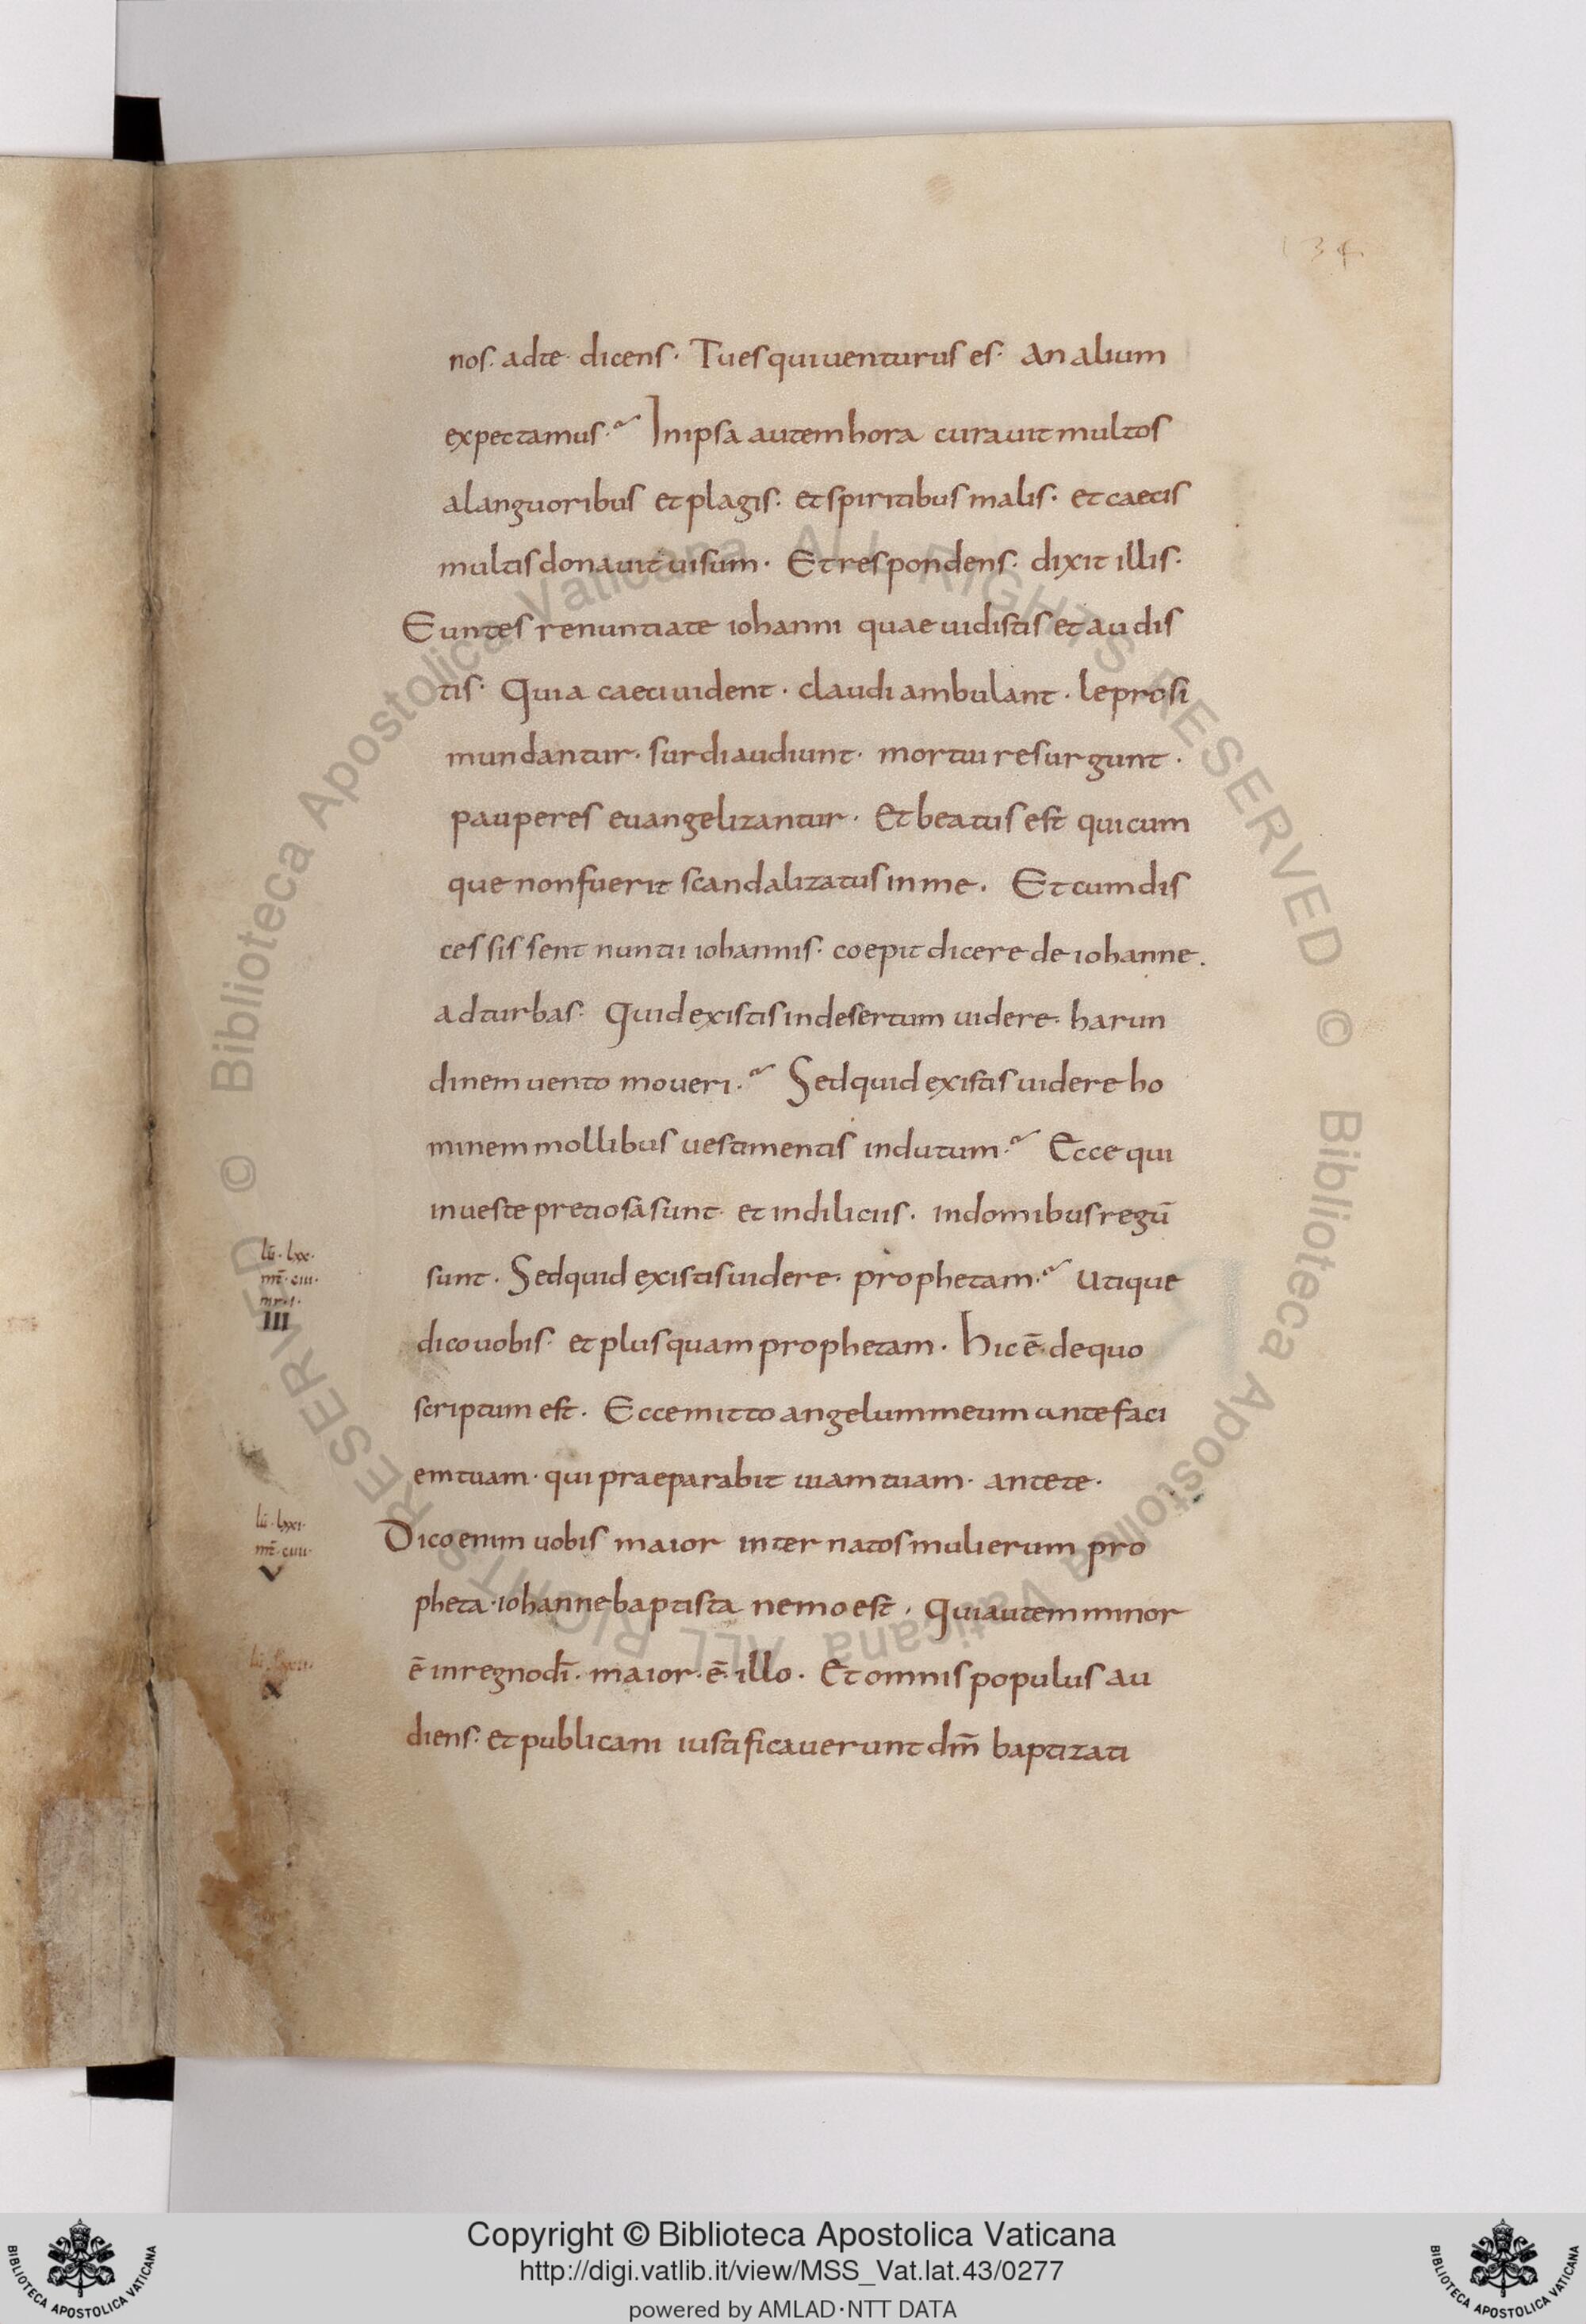 134
nos· adte· dicens· Tu es qui uenturus es· An alium
expectamus·? In ipsa autem hora curauit multos
a languoribus et plagis· et spiritibus malis· et caecis
multis donauit uisum· Et respondens· dixit illis·
Euntes renuntiate iohanni quae uidistis et audis
tis· Quia caeci uident· claudi ambulant· leprosi
mundantur· surdi audiunt· mortui resurgunt·
pauperes euangelizantur· Et beatus est quicum
que non fuerit scandalizatus in me· Et cum dis
cessissent nuntii iohannis· coepit dicere de iohanne.
ad turbas· Quid existis in desertum uidere· harun
dinem uento moueri·? Sed quid existis uidere ho
minem mollibus uestimentis indutum·? Ecce qui
in ueste pretiosa sunt· et in diliciis· in domibus regū
lū· lxx·
mt̄· ciii·
mr·i·
III
sunt· Sed quid existis uidere· prophetam·? Utique
dico uobis· et plus quam prophetam· Hic ē· de quo
scriptum est· Ecce mitto angelum meum ante faci
em tuam· qui praeparabit uiam tuam· ante te·
lū· lxxi·
mt̄· ciiii·
V
Dico enim uobis maior inter natos mulierum pro
pheta· iohanne baptista nemo est· Qui autem minor
X
ē in regno dī· maior· ē· illo· Et omnis populus au
diens· et publicani iustificauerunt dm̄ baptizati
© Biblioteca Apostolica Vaticana ALL RIGHTS RESERVED © Biblioteca Apostolica Vaticana ALL RIGHTS RESERVED
Copyright © Biblioteca Apostolica Vaticana
http://digi.vatlib.it/view/MSS_Vat.lat.43/0277
powered by AMLAD·NTT DATA
BIBLIOTECA APOSTOLICA VATICANA
BIBLIOTECA APOSTOLICA VATICANA